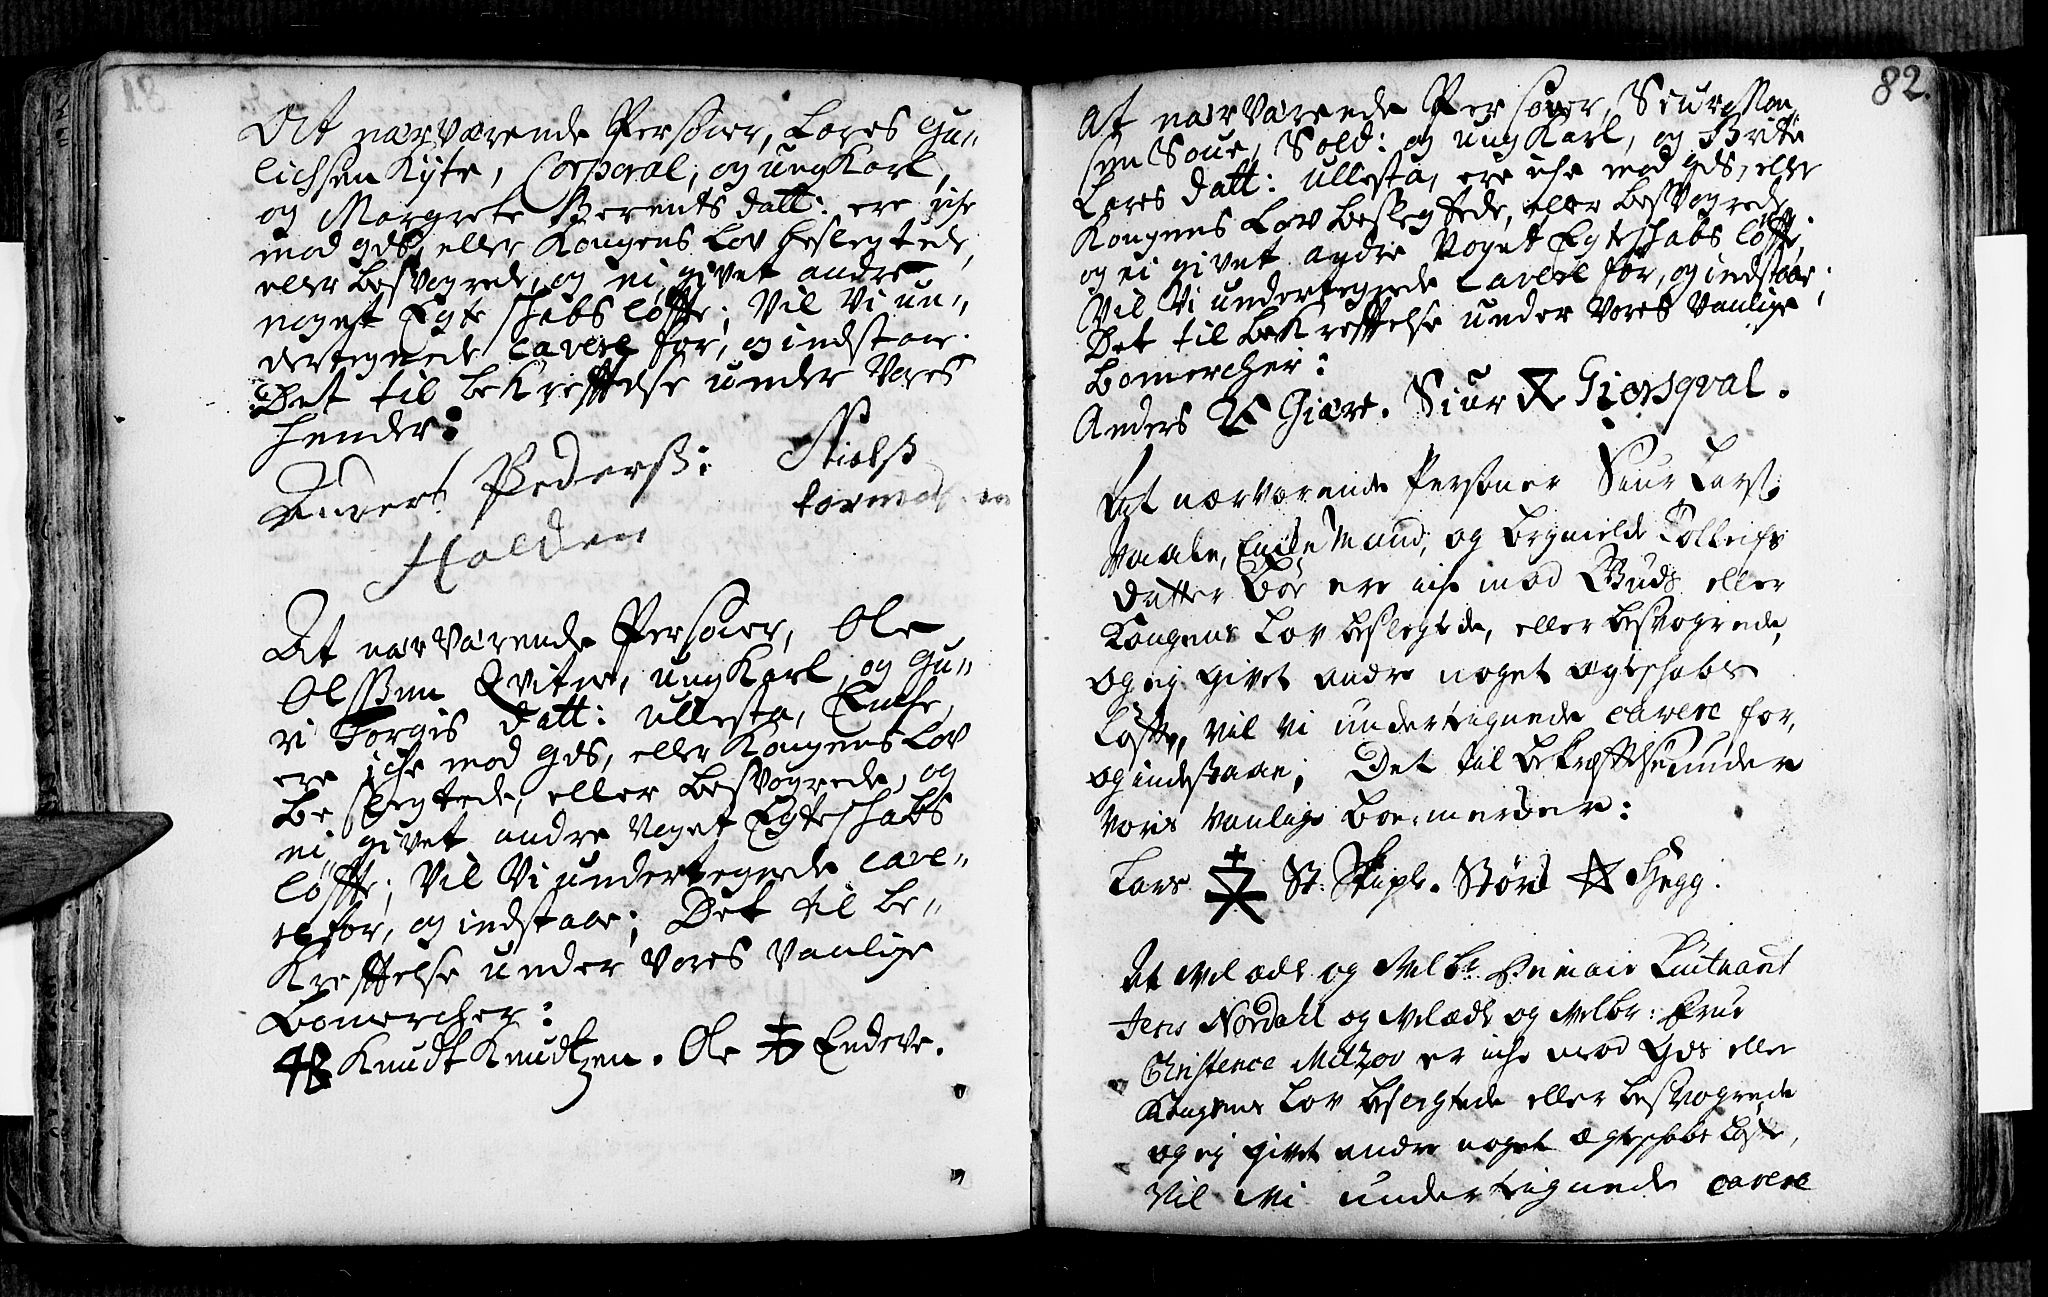 At nærværende Personer, Lares Gu-
lichsen Kyte, Corporal, og ungKarl,
og Margrete Berents datt: ere iche
mod gds, eller Kongens Lov beslegtede,
eller besvogrede, og ei givet andre
noget Egteschabs løffte; Vil Vi un-
dertegnede cavere for, og indstaae.
Det til bekrefftelse under Vores
hender:
Pederß: Nielß
Holden
At nærværende Personer, Ole
Olssen Qvitne, ungKarl, og Gu-
ri Torgis datt: Ullesta, Enche,
ere iche mod gds, eller Kongens Lov
beslegtede, eller besvogrede, og
ei givet andre noget Egteschabs
løffte; Vil Vi undertegnede cave-
re for, og indstaae; Det til be-
krefftelse under Vores Vanlige
Bomercher:
Knudt Knudtzen. Ole Endeve.
82.
At nærværende Personer, Siur Mon-
sen Soue, Sold: og ungKarl, og Brite
Lares datt: Ullesta, ere iche mod gds, eller
Kongens Lov beslegtede, eller besvogrede,
og ei givet andre noget Egteschabs løffte,
Vil Vi undertegnede cavere for, og indstaae;
Det til bekrefftelse under Vores Vanlige
Bomercher:
Anders Giære. Siur Giersqval.
At nærværende Persner Siur Larsß
Enke Mand, og Brynield Tolleifs
datter Bøe ere iche mod Guds eller
Kongens Lov beslegtede, eller besvogrede,
og ej givet andre noget ægteschabs
Løffte, vil vi undertegnede cavere for,
og indestaae; Det til bekræfftelse under
Voris Vanlige Boe-mercker:
Lars St. Skiple. Størd Hegg.
At Vel ædle og Velbr Premair Lieutnant
Jens Nordahl og Velædle og Velbr: Frue
Christence Meltzov er iche mod Gds eller
Kongens Lov beslegtede eller besvogrede
og ej givet andre noget Ægteschabs Løffte,
Vil Vi undertegnede cavere